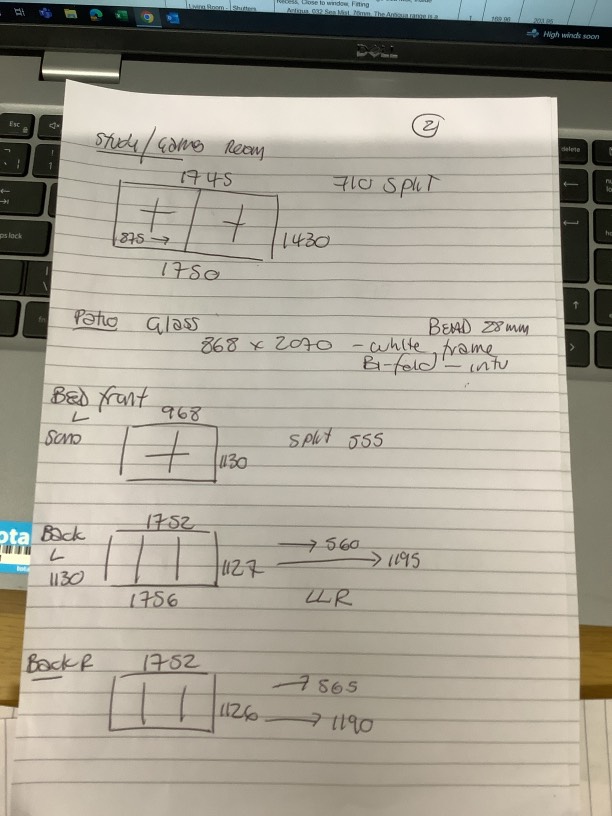 Living Room - Shutters
Recess, Close to window, Fitting
Antigua, 032 Sea Mist, 76mm. The Antigua range is a
High winds soon
DELL
Esc
delete
2
Study/Games Room
1745
710 split
875 →
1430
1750
Patio Glass
BEAD 28mm
868 x 2070 - white frame
Bi-fold - intu
BED front
L
968
Split 555
1130
Back
1752
→ 560
L
1127
→ 1195
1130
1756
LLR
Back R
1752
→ 565
1126
→ 1190